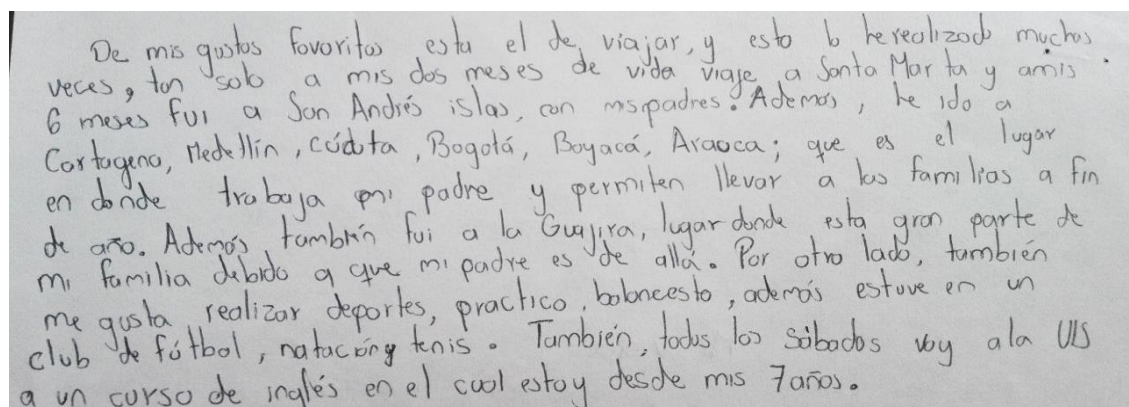 De mis gustos favoritos esta el de viajar, y esto lo he realizado muchas
veces, tan solo a mis dos meses de vida viaje a Santa Marta y amis
6 meses fui a San Andrés islas, con mis padres. Además, he ido a
Cartagena, Medellín, cúcuta, Bogotá, Boyacá, Arauca; que es el lugar
en donde trabaja mi padre y permiten llevar a las familias a fin
de año. Además, también fui a la Guajira, lugar donde esta gran parte de
mi familia debido a que mi padre es de allá. Por otro lado, también
me gusta realizar deportes, practico, baloncesto, además estuve en un
club de fútbol, natación y tenis. También, todos los sábados voy a la UIS
a un curso de inglés en el cual estoy desde mis 7 años.